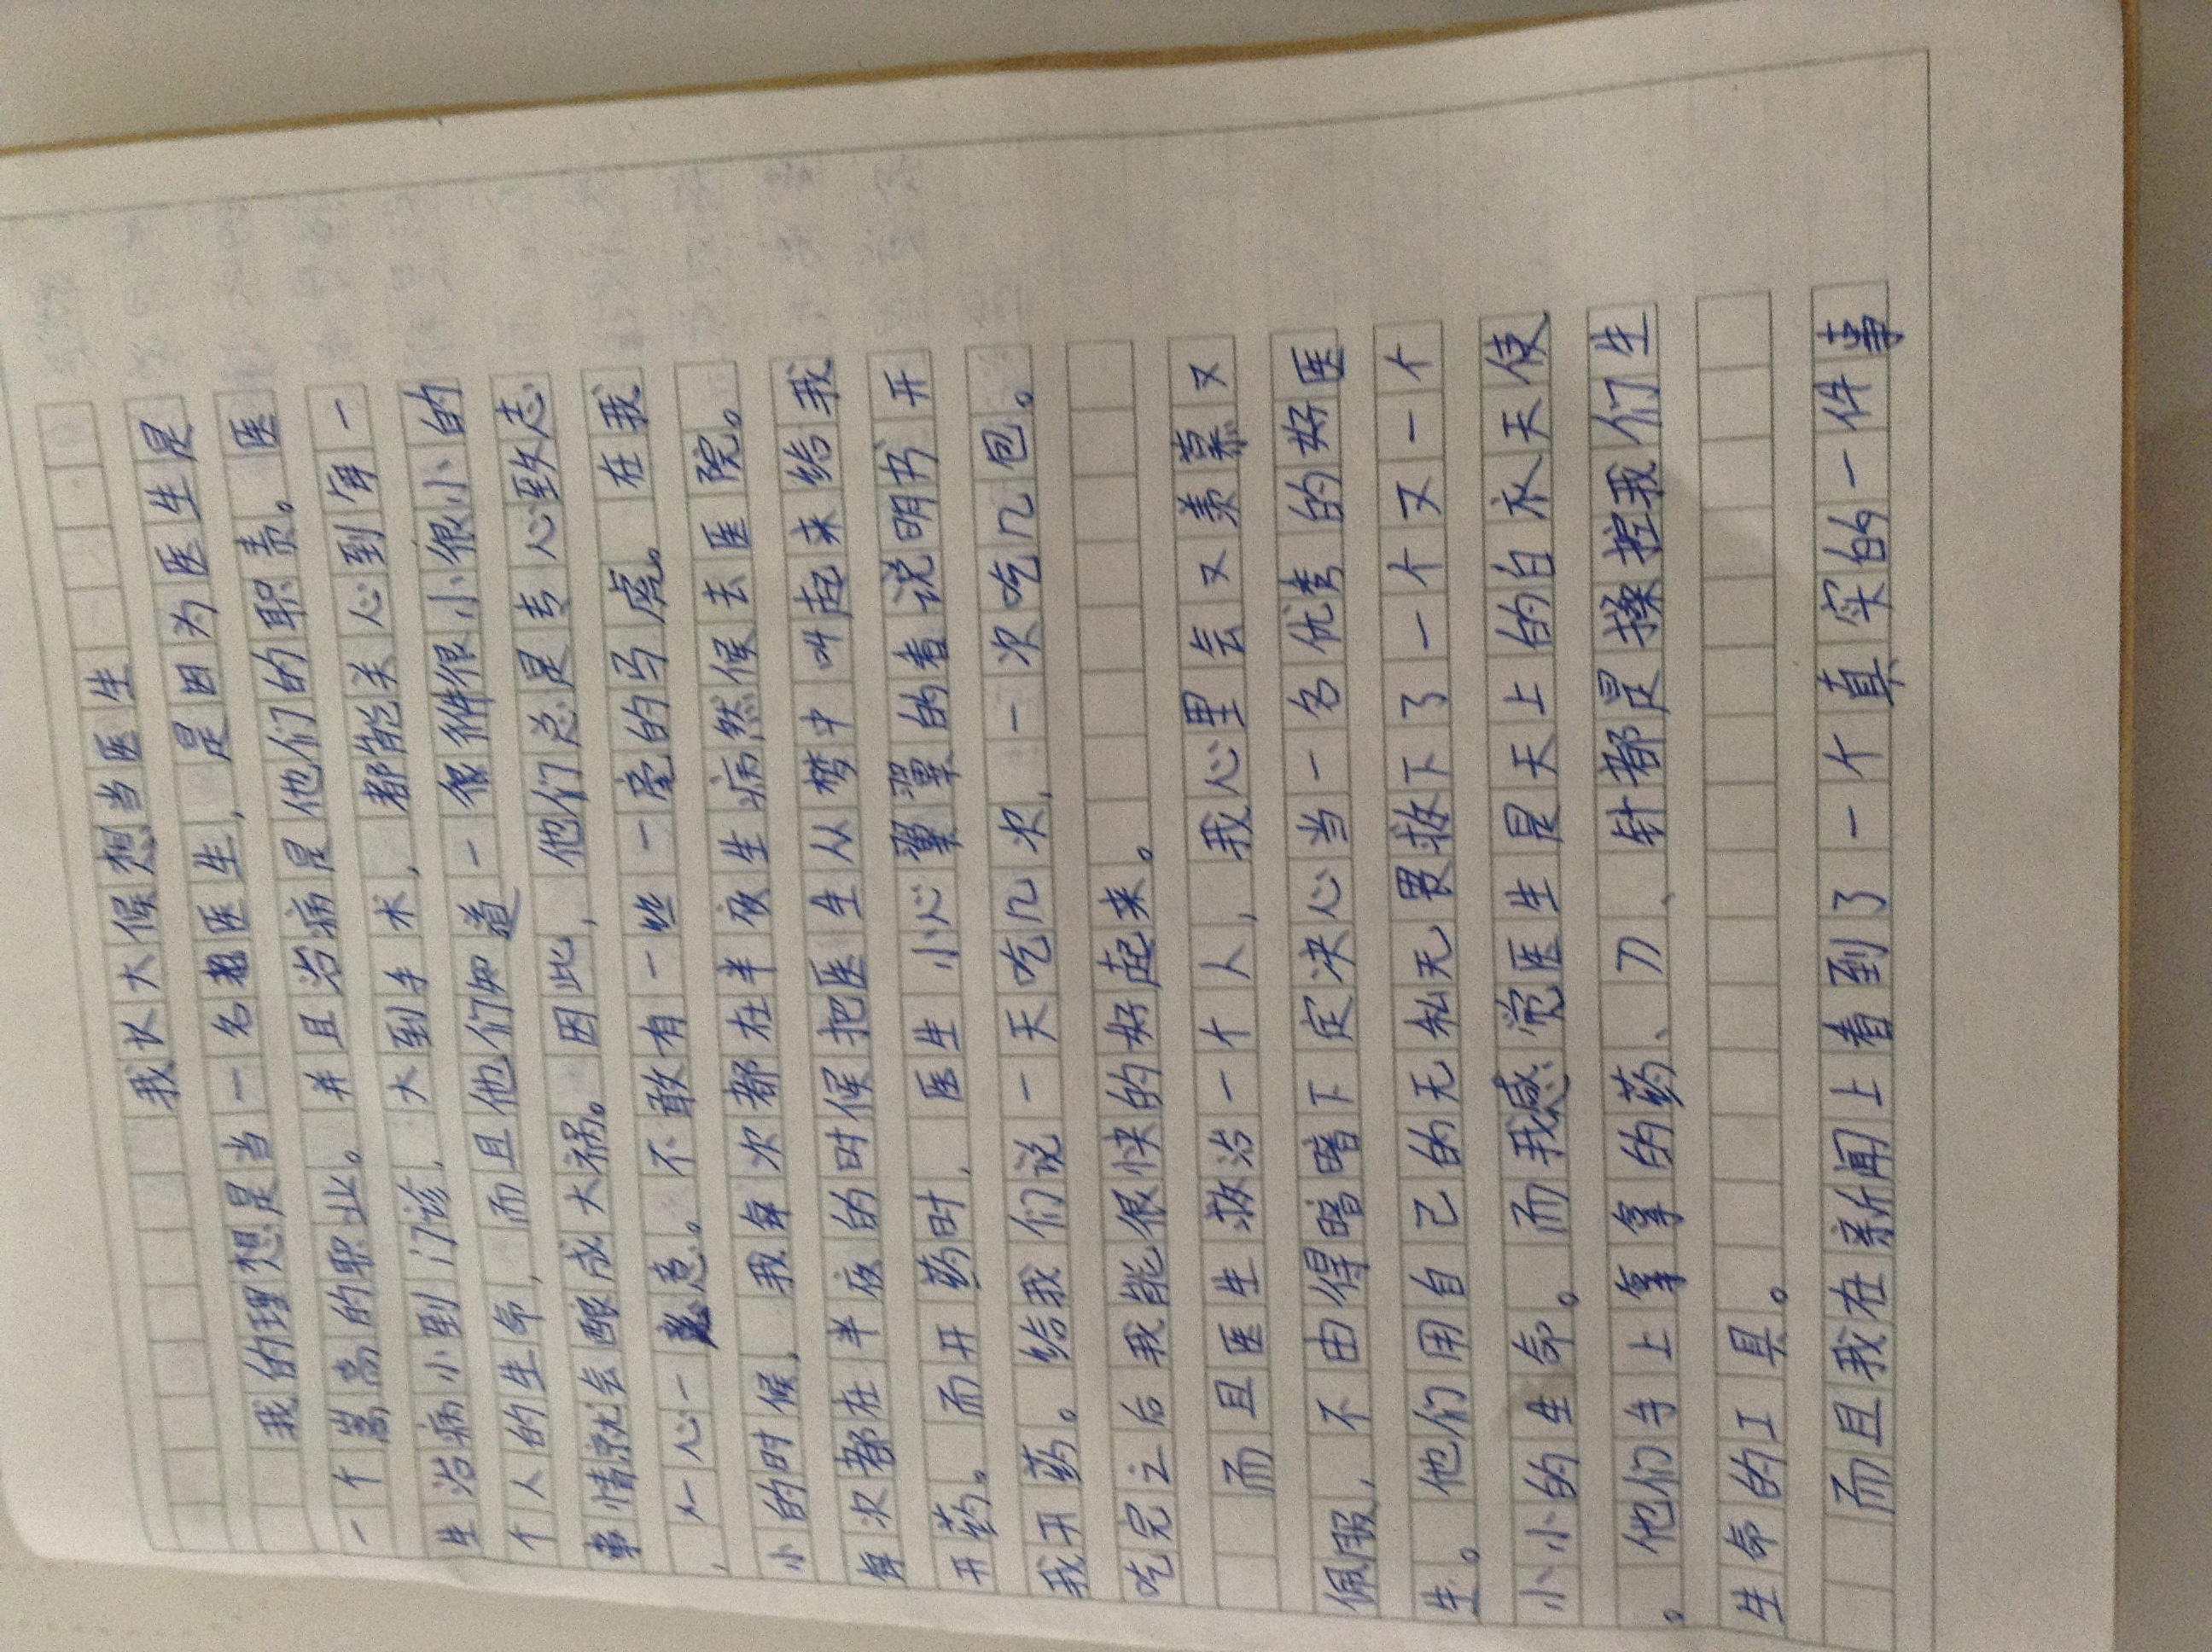 我长大候想当医生
我的理想是当一名医生，是因为医生是
一个崇高的职业。并且治病是他们的职责。医
生治病小到门诊，大到手术，都能关心到每一
个人的生命，而且他们知道一很件很小很小的
事情就会酿成大祸。因此，他们总是专心致志
，一心一意。不敢有一些一毫的马虎。在我
小的时候，我每次都在半夜生病然候去医院。
每次都在半夜的时候把医生从梦中叫起来给我
开药。而开药时，医生小心翼翼的看说明书开
我开药。给我们说一天吃几次，一次吃几包。
吃完之后我能很快的好起来。
而且医生救治一个人，我心里会又羡慕又
佩服，不由得暗暗下定决心当一名优秀的好医
生。他们用自己的无私无畏救下了一个又一个
小小的生命。而我感觉医生是天上的白衣天使
。他们手上拿拿的药、刀、针都是操控我们生
生命的工具。
而且我在新闻上看到了一个真实的一件事